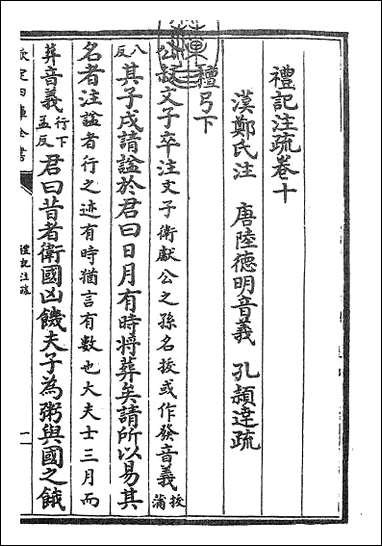 禮記注疏卷十
漢鄭氏注 唐陸德明音義 孔穎達疏
檀弓下
公叔文子卒注文子衛獻公之孫名拔或作發音義拔蒲
八反其子戍請諡於君曰日月有時將葬矣請所以易其
名者注諡者行之迹有時猶言有數也大夫士三月而
葬音義行下孟反君曰昔者衛國凶饑夫子為粥與國之餓
欽定四庫全書
禮記注疏
一